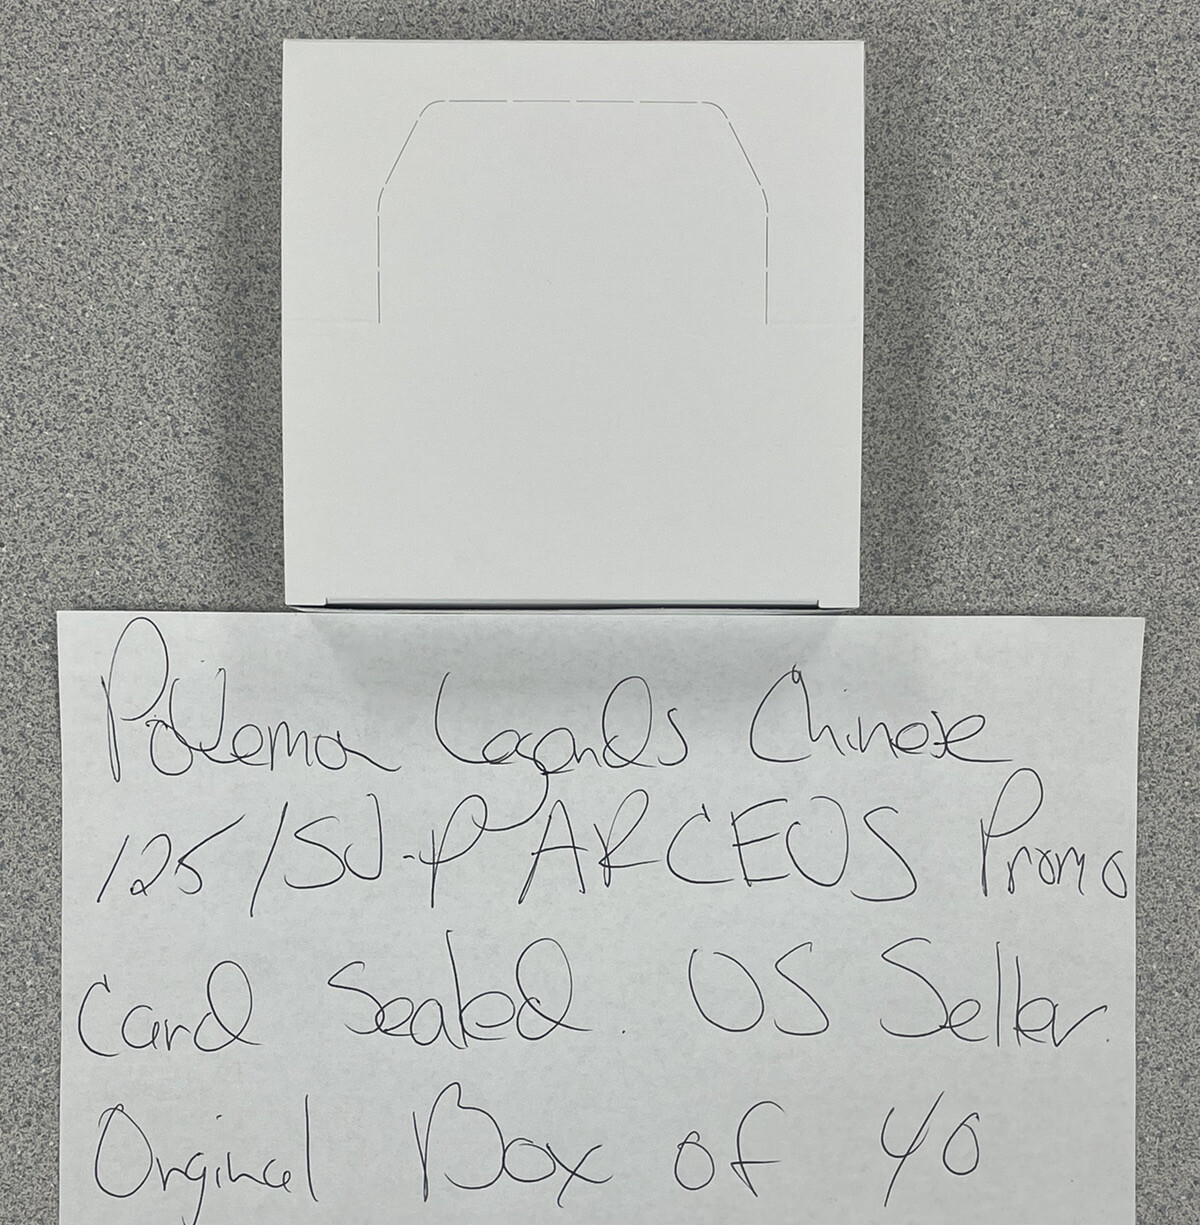 Pokemon Legends Chinese
125/SV-P ARCEUS Promo
Card Sealed. US Seller.
Orginal Box of 40